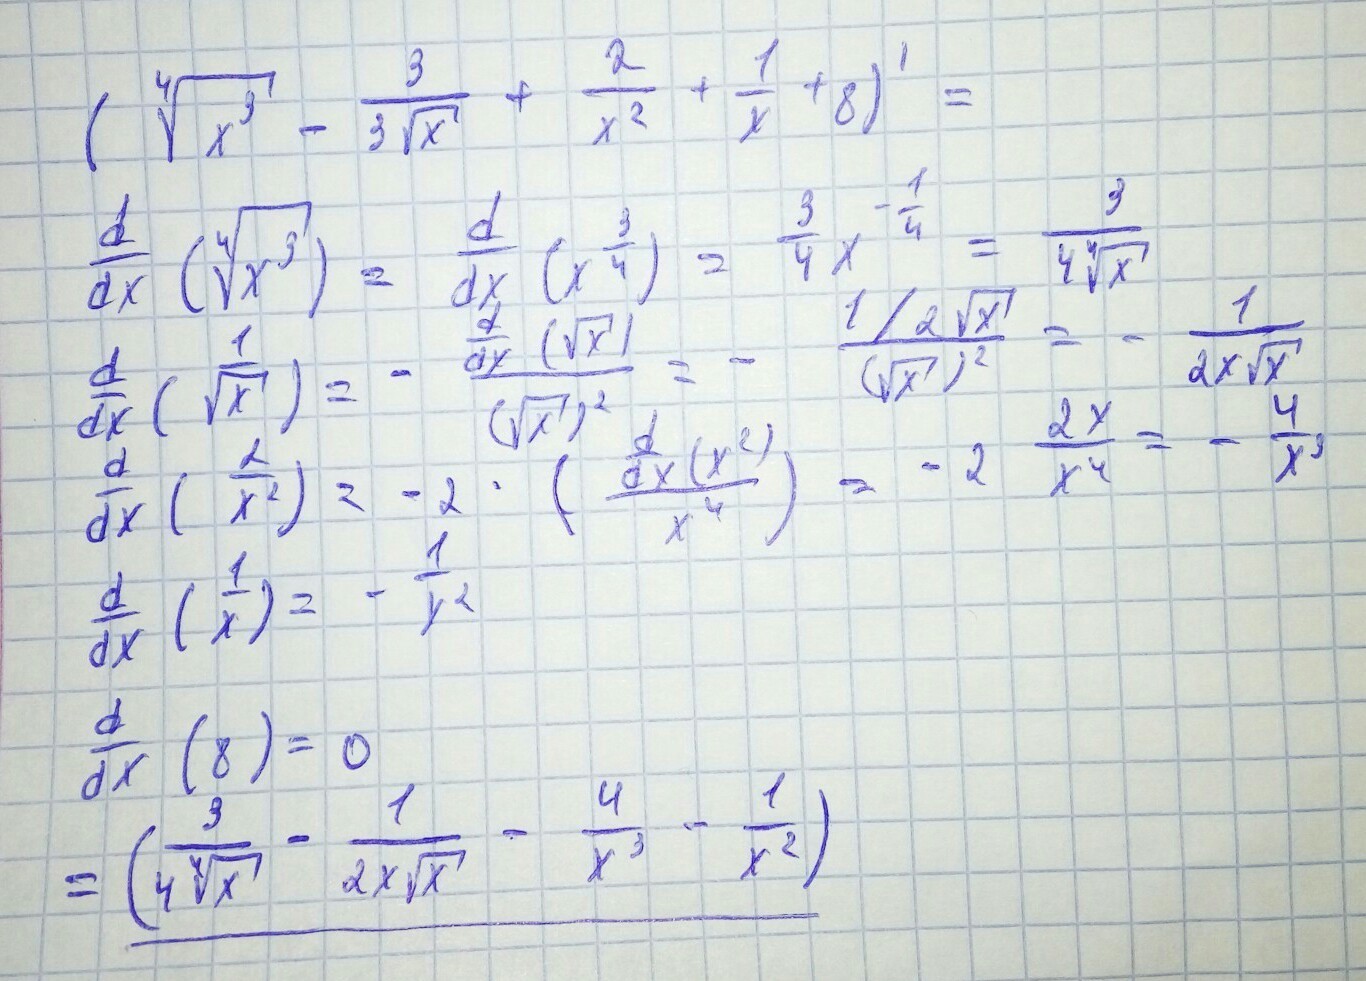 ( ∜x³ − 3/(3√x) + 2/x² + 1/x + 8 )' =
d/dx (∜x³) = d/dx (x^(3/4)) = 3/4 x^(−1/4) = 3/(4∜x)
d/dx (1/√x) = − (d/dx (√x))/(√x)² = − (1/2√x)/(√x)² = − 1/(2x√x)
d/dx (2/x²) = −2 · ( (d/dx (x²))/x⁴ ) = −2 2x/x⁴ = − 4/x³
d/dx (1/x) = − 1/x²
d/dx (8) = 0
= ( 3/(4∜x) − 1/(2x√x) − 4/x³ − 1/x² )